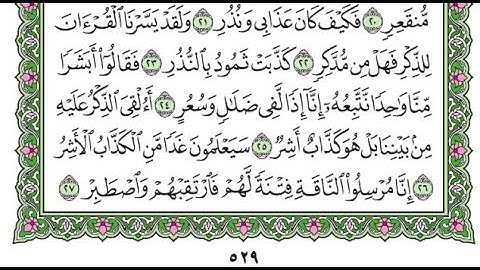 مُّنقَعِرٍ ٢٠ فَكَيْفَ كَانَ عَذَابِي وَنُذُرِ ٢١ وَلَقَدْ يَسَّرْنَا ٱلْقُرْءَانَ
لِلذِّكْرِ فَهَلْ مِن مُّدَّكِرٍ ٢٢ كَذَّبَتْ ثَمُودُ بِٱلنُّذُرِ ٢٣ فَقَالُوٓا۟ أَبَشَرًا
مِّنَّا وَٰحِدًا نَّتَّبِعُهُۥٓ إِنَّآ إِذًا لَّفِى ضَلَٰلٍ وَسُعُرٍ ٢٤ أَءُلْقِىَ ٱلذِّكْرُ عَلَيْهِ
مِنۢ بَيْنِنَا بَلْ هُوَ كَذَّابٌ أَشِرٌ ٢٥ سَيَعْلَمُونَ غَدًا مَّنِ ٱلْكَذَّابُ ٱلْأَشِرُ
٢٦ إِنَّا مُرْسِلُوا۟ ٱلنَّاقَةِ فِتْنَةً لَّهُمْ فَٱرْتَقِبْهُمْ وَٱصْطَبِرْ ٢٧
٥٢٩